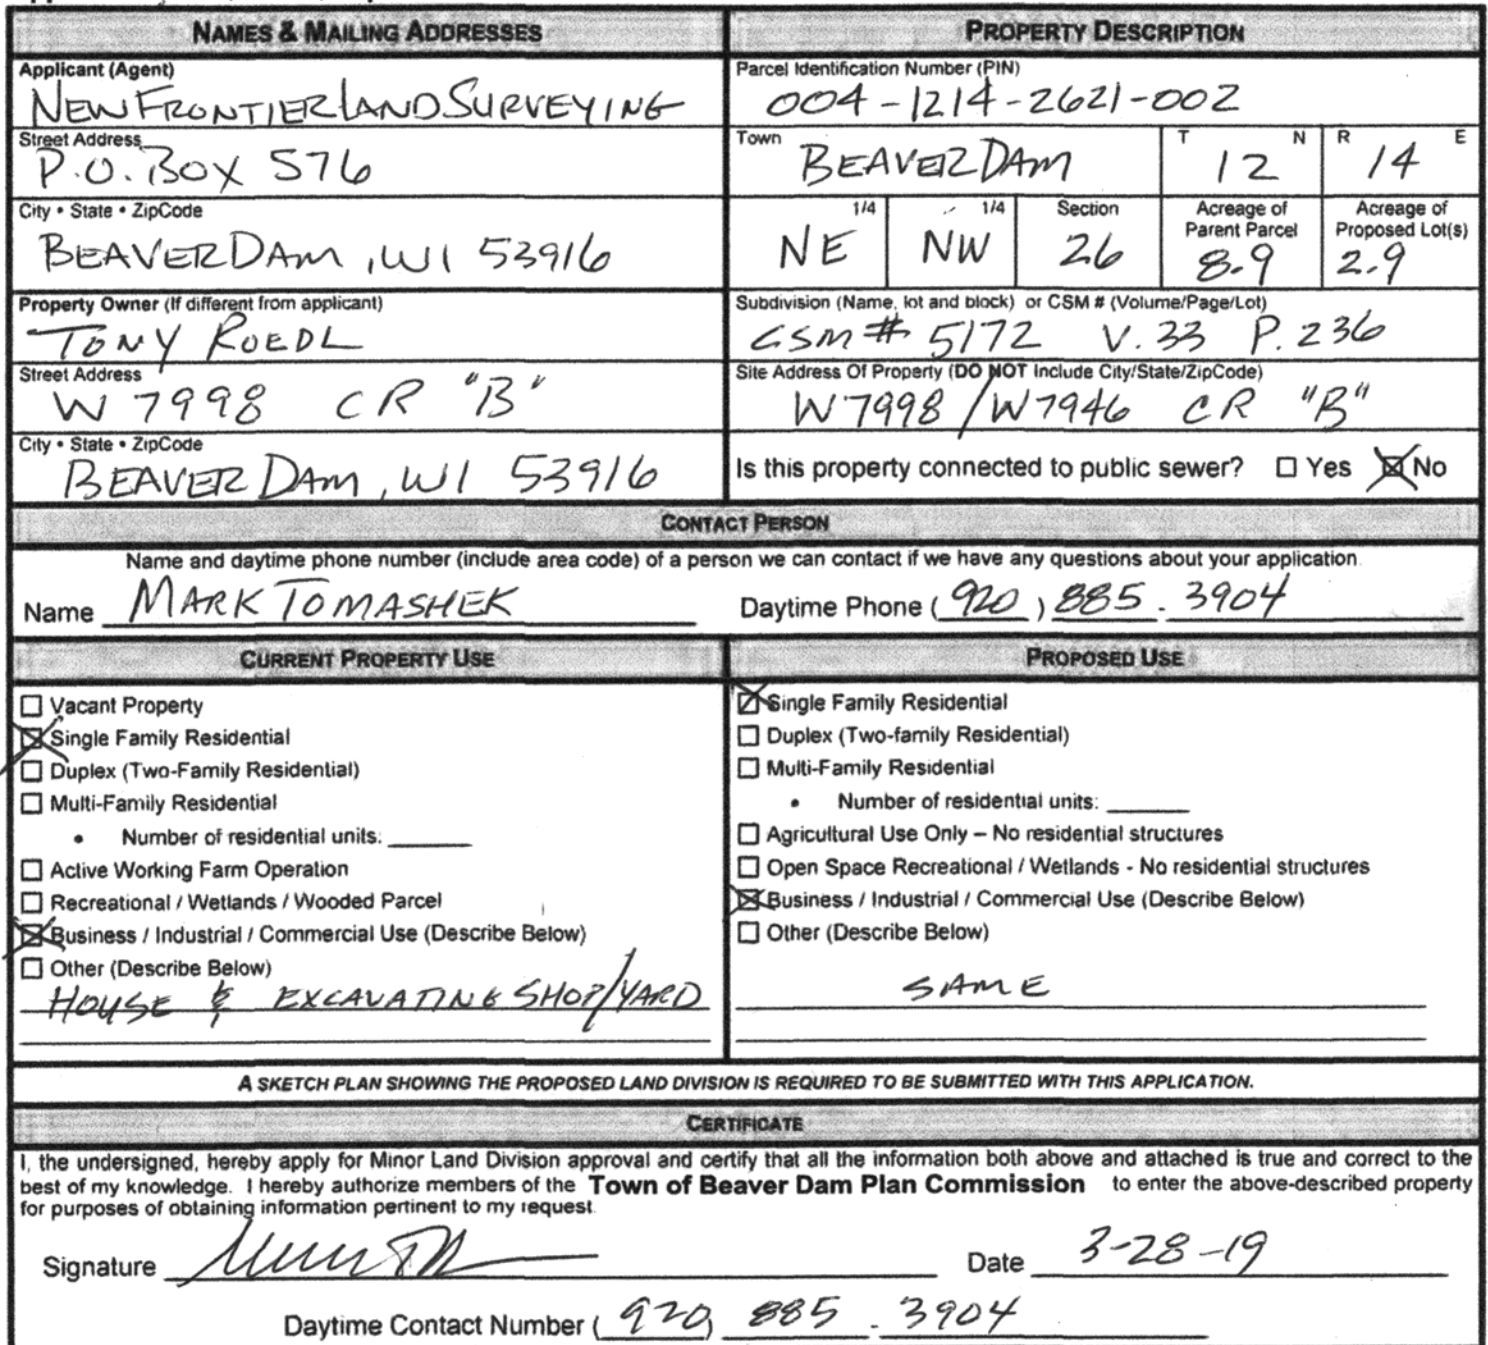 NAMES & MAILING ADDRESSES
Applicant (Agent)
NEW FRONTIER LAND SURVEYING
Street Address
P.O. BOX 576
City • State • ZipCode
BEAVER DAM, WI 53916
Property Owner (If different from applicant)
TONY ROEDL
Street Address
W 7998 CR "B"
City • State • ZipCode
BEAVER DAM, WI 53916
PROPERTY DESCRIPTION
Parcel Identification Number (PIN)
004-1214-2621-002
Town BEAVER DAM
T 12 N
R 14 E
NE 1/4
NW 1/4
Section 26
Acreage of Parent Parcel 8.9
Acreage of Proposed Lot(s) 2.9
Subdivision (Name, lot and block) or CSM # (Volume/Page/Lot)
CSM # 5172 V. 33 P. 236
Site Address Of Property (DO NOT Include City/State/ZipCode)
W7998/W7946 CR "B"
Is this property connected to public sewer? ☐ Yes ☒ No
CONTACT PERSON
Name and daytime phone number (include area code) of a person we can contact if we have any questions about your application
Name MARK TOMASHEK Daytime Phone (920) 885 . 3904
CURRENT PROPERTY USE
☐ Vacant Property
☒ Single Family Residential
☐ Duplex (Two-Family Residential)
☐ Multi-Family Residential
• Number of residential units:
☐ Active Working Farm Operation
☐ Recreational / Wetlands / Wooded Parcel
☒ Business / Industrial / Commercial Use (Describe Below)
☐ Other (Describe Below)
HOUSE & EXCAVATING SHOP/YARD
PROPOSED USE
☒ Single Family Residential
☐ Duplex (Two-family Residential)
☐ Multi-Family Residential
• Number of residential units:
☐ Agricultural Use Only – No residential structures
☐ Open Space Recreational / Wetlands - No residential structures
☒ Business / Industrial / Commercial Use (Describe Below)
☐ Other (Describe Below)
SAME
A SKETCH PLAN SHOWING THE PROPOSED LAND DIVISION IS REQUIRED TO BE SUBMITTED WITH THIS APPLICATION.
CERTIFICATE
I, the undersigned, hereby apply for Minor Land Division approval and certify that all the information both above and attached is true and correct to the
best of my knowledge. I hereby authorize members of the Town of Beaver Dam Plan Commission to enter the above-described property
for purposes of obtaining information pertinent to my request.
Signature Date 3-28-19
Daytime Contact Number (920) 885 - 3904